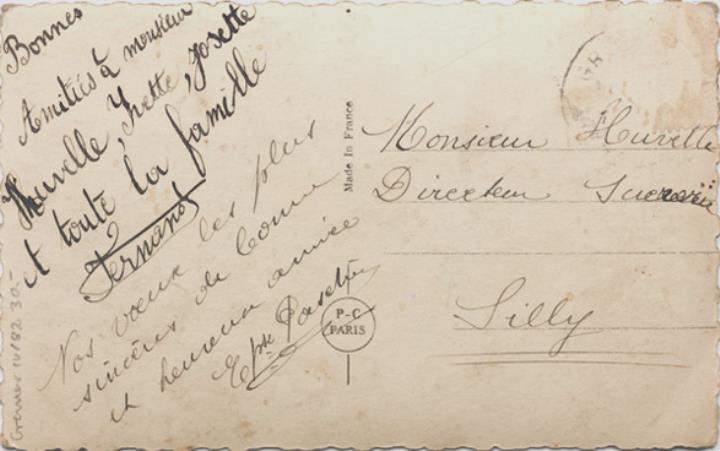 Bonnes
Amitiés à monsieur
Huvelle, Yvette, Josette
et toute la famille
Fernand
Nos vœux les plus
sincères de bonne
et heureuse année
Made In France
P-C
PARIS
Monsieur Huvelle
Directeur Sucrerie
Silly